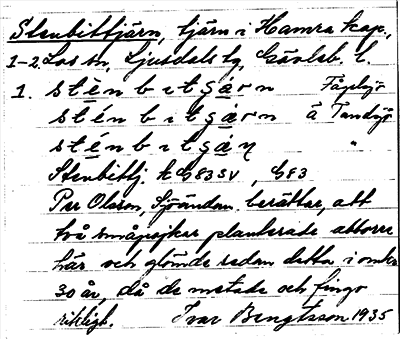 Stenbittjärn, tjärn i Hamra kap.,
1-2. Los sn, Ljusdals tg, Gävleb. l.
1. stènbitgärn Fågelsjö
stènbitgärn å Tandsjö
sténbitgäṇ "
Stenbittj. k G83SV, G83
Per Olsson, Sjöändan berättar, att
två småpojkar planterade abborre
här och glömde sedan detta i omkr.
30 år, då de metade och fingo
rikligt. Ivar Bengtsson 1935